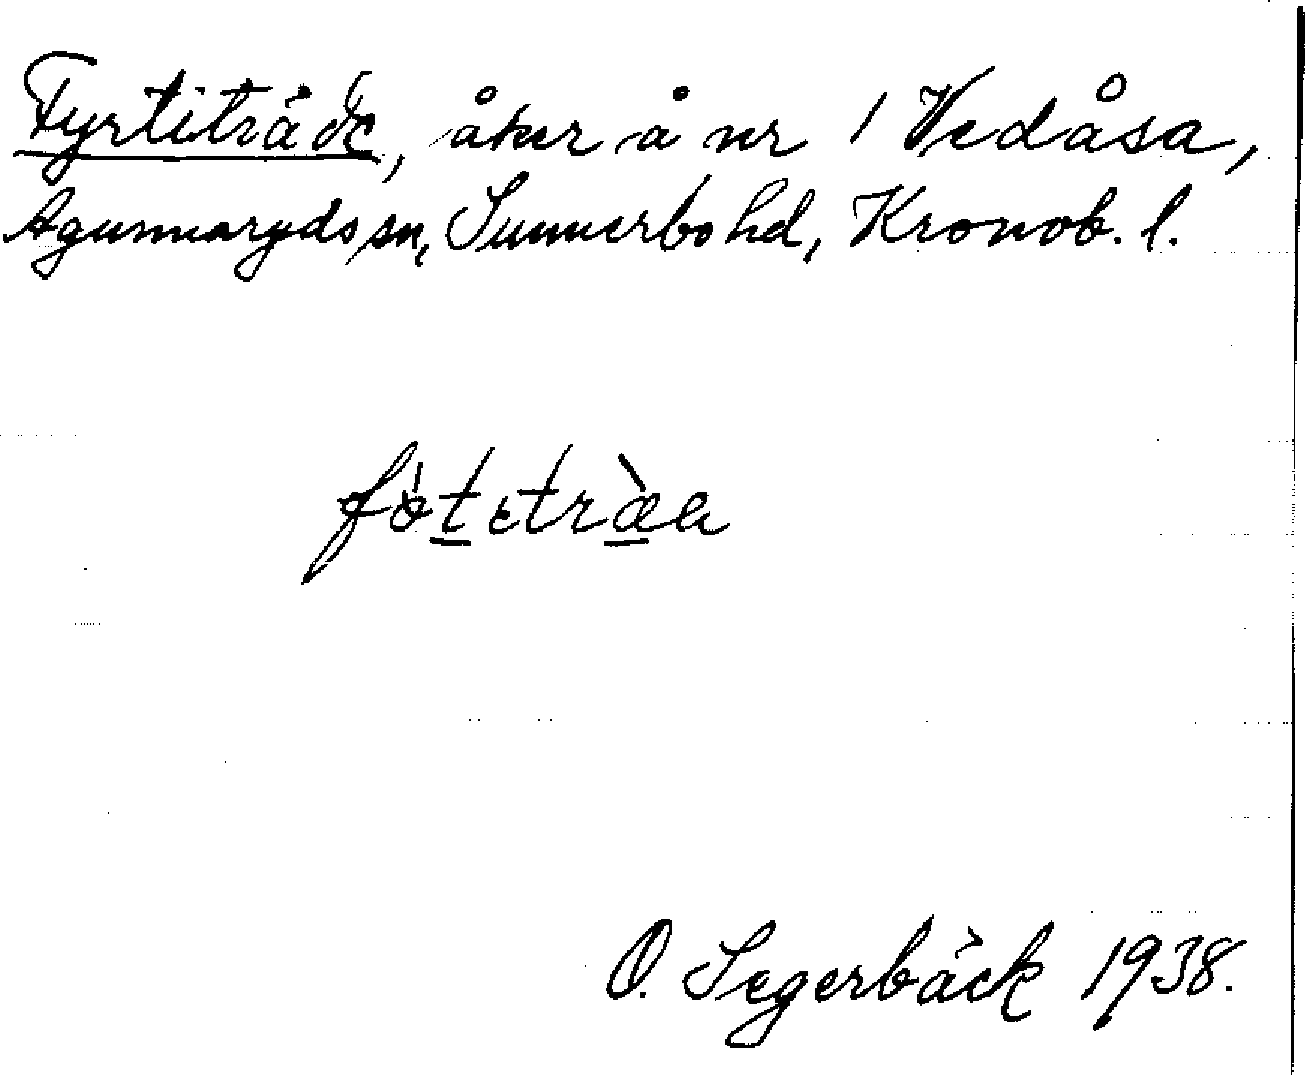 Fyrtiträde, åker å nr 1 Vedåsa,
Agunnaryds sn, Sunnerbo hd, Kronob. l.
fòtetræ̀a
O. Segerbäck 1938.